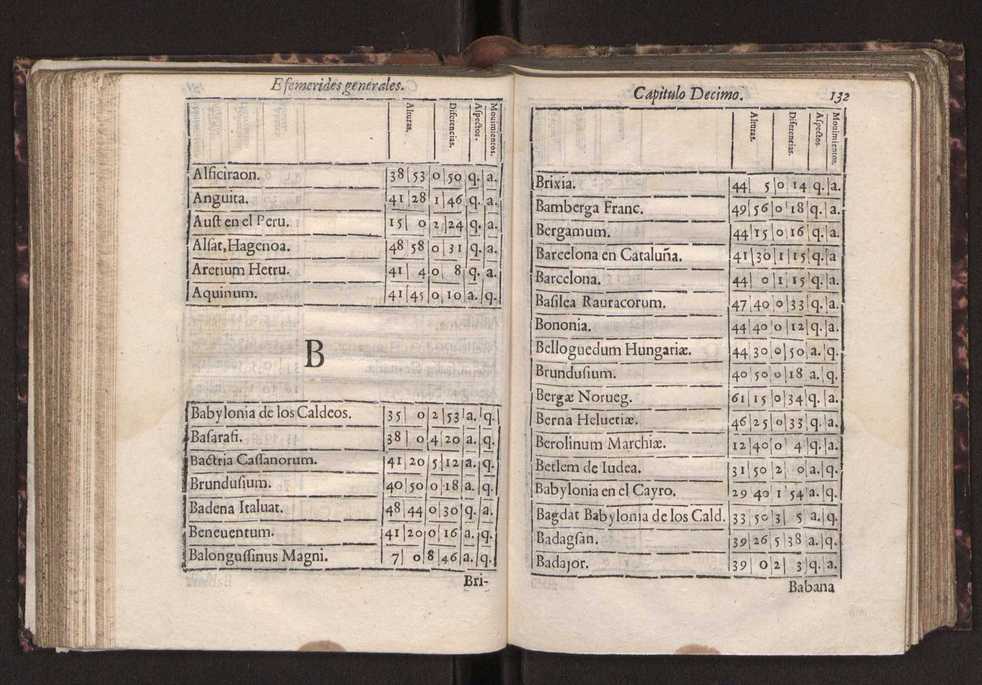 Efemerides generales.
Alturas. Diferencias. Aspectos. Mouimientos.
Alficiraon. 38 53 0 50 q. a.
Anguita. 41 28 1 46 q. a.
Aust en el Peru. 15 0 2 24 q. a.
Alsat, Hagenoa. 48 58 0 31 q. a.
Aretium Hetru. 41 4 0 8 q. a.
Aquinum. 41 45 0 10 a. q.
B
Babylonia de los Caldeos. 35 0 2 53 a. q.
Basarasi. 38 0 4 20 a. q.
Bactria Cassanorum. 41 20 5 12 a. q.
Brundusium. 40 50 0 18 a. q.
Badena Italuat. 48 44 0 30 q. a.
Beneuentum. 41 20 0 16 a. q.
Balongussinus Magni. 7 0 8 46 a. q.
Bri-
Capitulo Decimo. 132
Alturas. Diferencias. Aspectos. Mouimientos.
Brixia. 44 5 0 14 q. a.
Bamberga Franc. 49 56 0 18 q. a.
Bergamum. 44 15 0 16 q. a
Barcelona en Cataluña. 41 30 1 15 q. a
Barcelona. 44 0 1 15 q. a.
Basilea Rauracorum. 47 40 0 33 q. a.
Bononia. 44 40 0 12 q. a.
Belloguedum Hungariæ. 44 30 0 50 a. q.
Brundusium. 40 50 0 18 a. q.
Bergæ Norueg. 61 15 0 34 q. a.
Berna Heluetiæ. 46 25 0 33 q. a.
Berolinum Marchiæ. 12 40 0 4 q. a.
Betlem de Iudea. 31 50 2 0 a. q.
Babylonia en el Cayro. 29 40 1 54 a. q.
Bagdat Babylonia de los Cald. 33 50 3 5 a. q.
Badagsan. 39 26 5 38 a. q.
Badajor. 39 0 2 3 q. a.
Babana